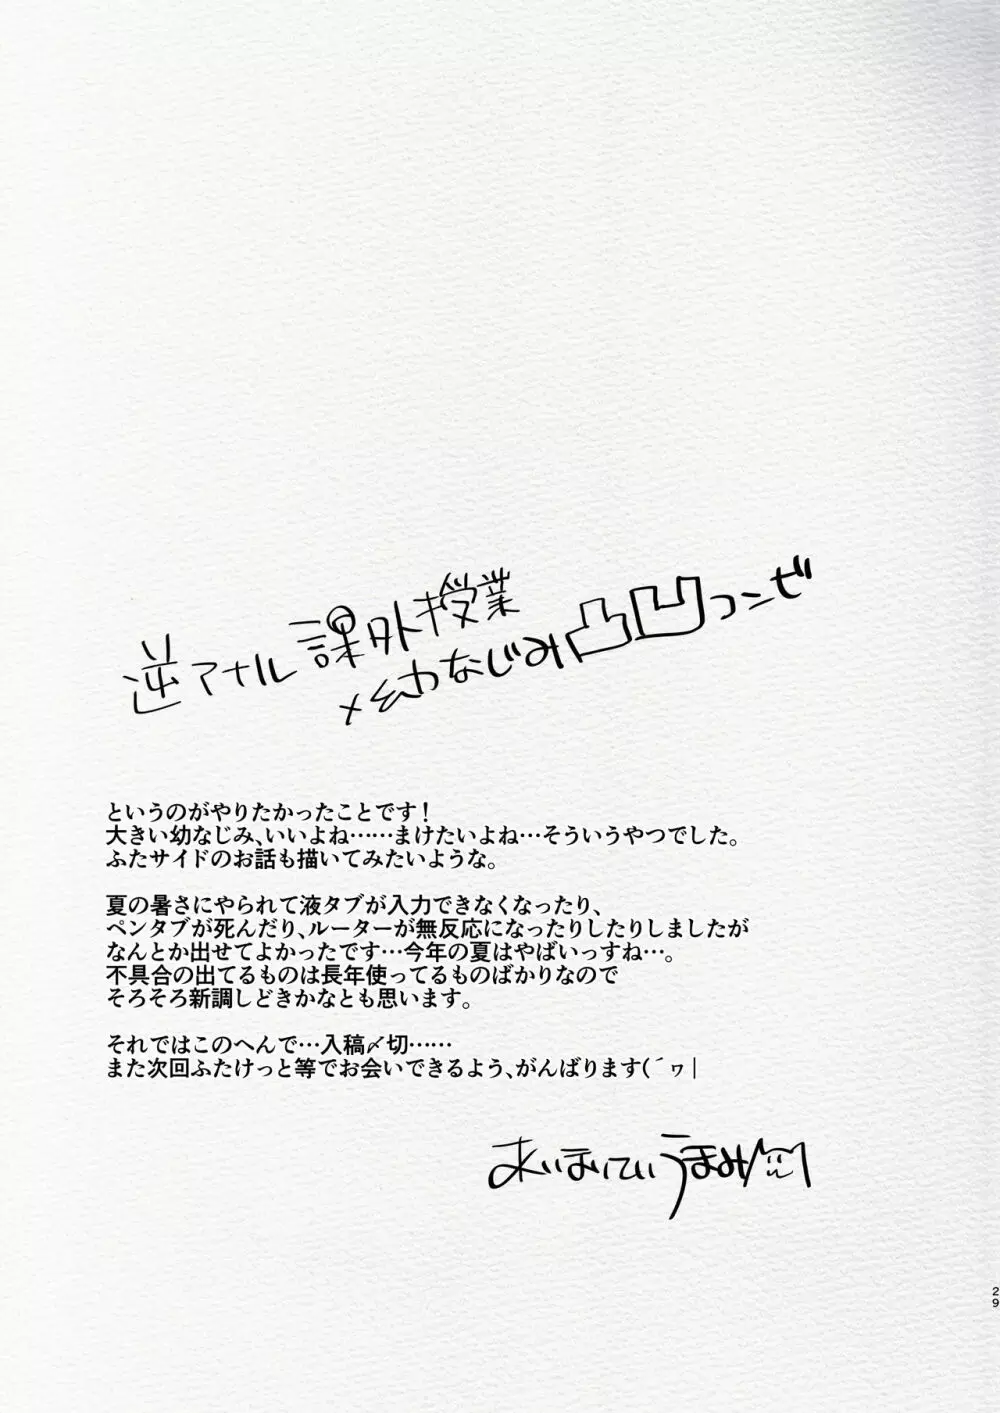 逆アナル課外授業
×幼なじみ凸凹コンビ
というのがやりたかったことです！
大きい幼なじみ、いいよね……まけたいよね…そういうやつでした。
ふたサイドのお話も描いてみたいような。
夏の暑さにやられて液タブが入力できなくなったり、
ペンタブが死んだり、ルーターが無反応になったりしたりしましたが
なんとか出せてよかったです…今年の夏はやばいっすね…。
不具合の出てるものは長年使ってるものばかりなので
そろそろ新調しどきかなとも思います。
それではこのへんで…入稿〆切……
また次回ふたけっと等でお会いできるよう、がんばります(´ヮ|
あいほていうまみ
29